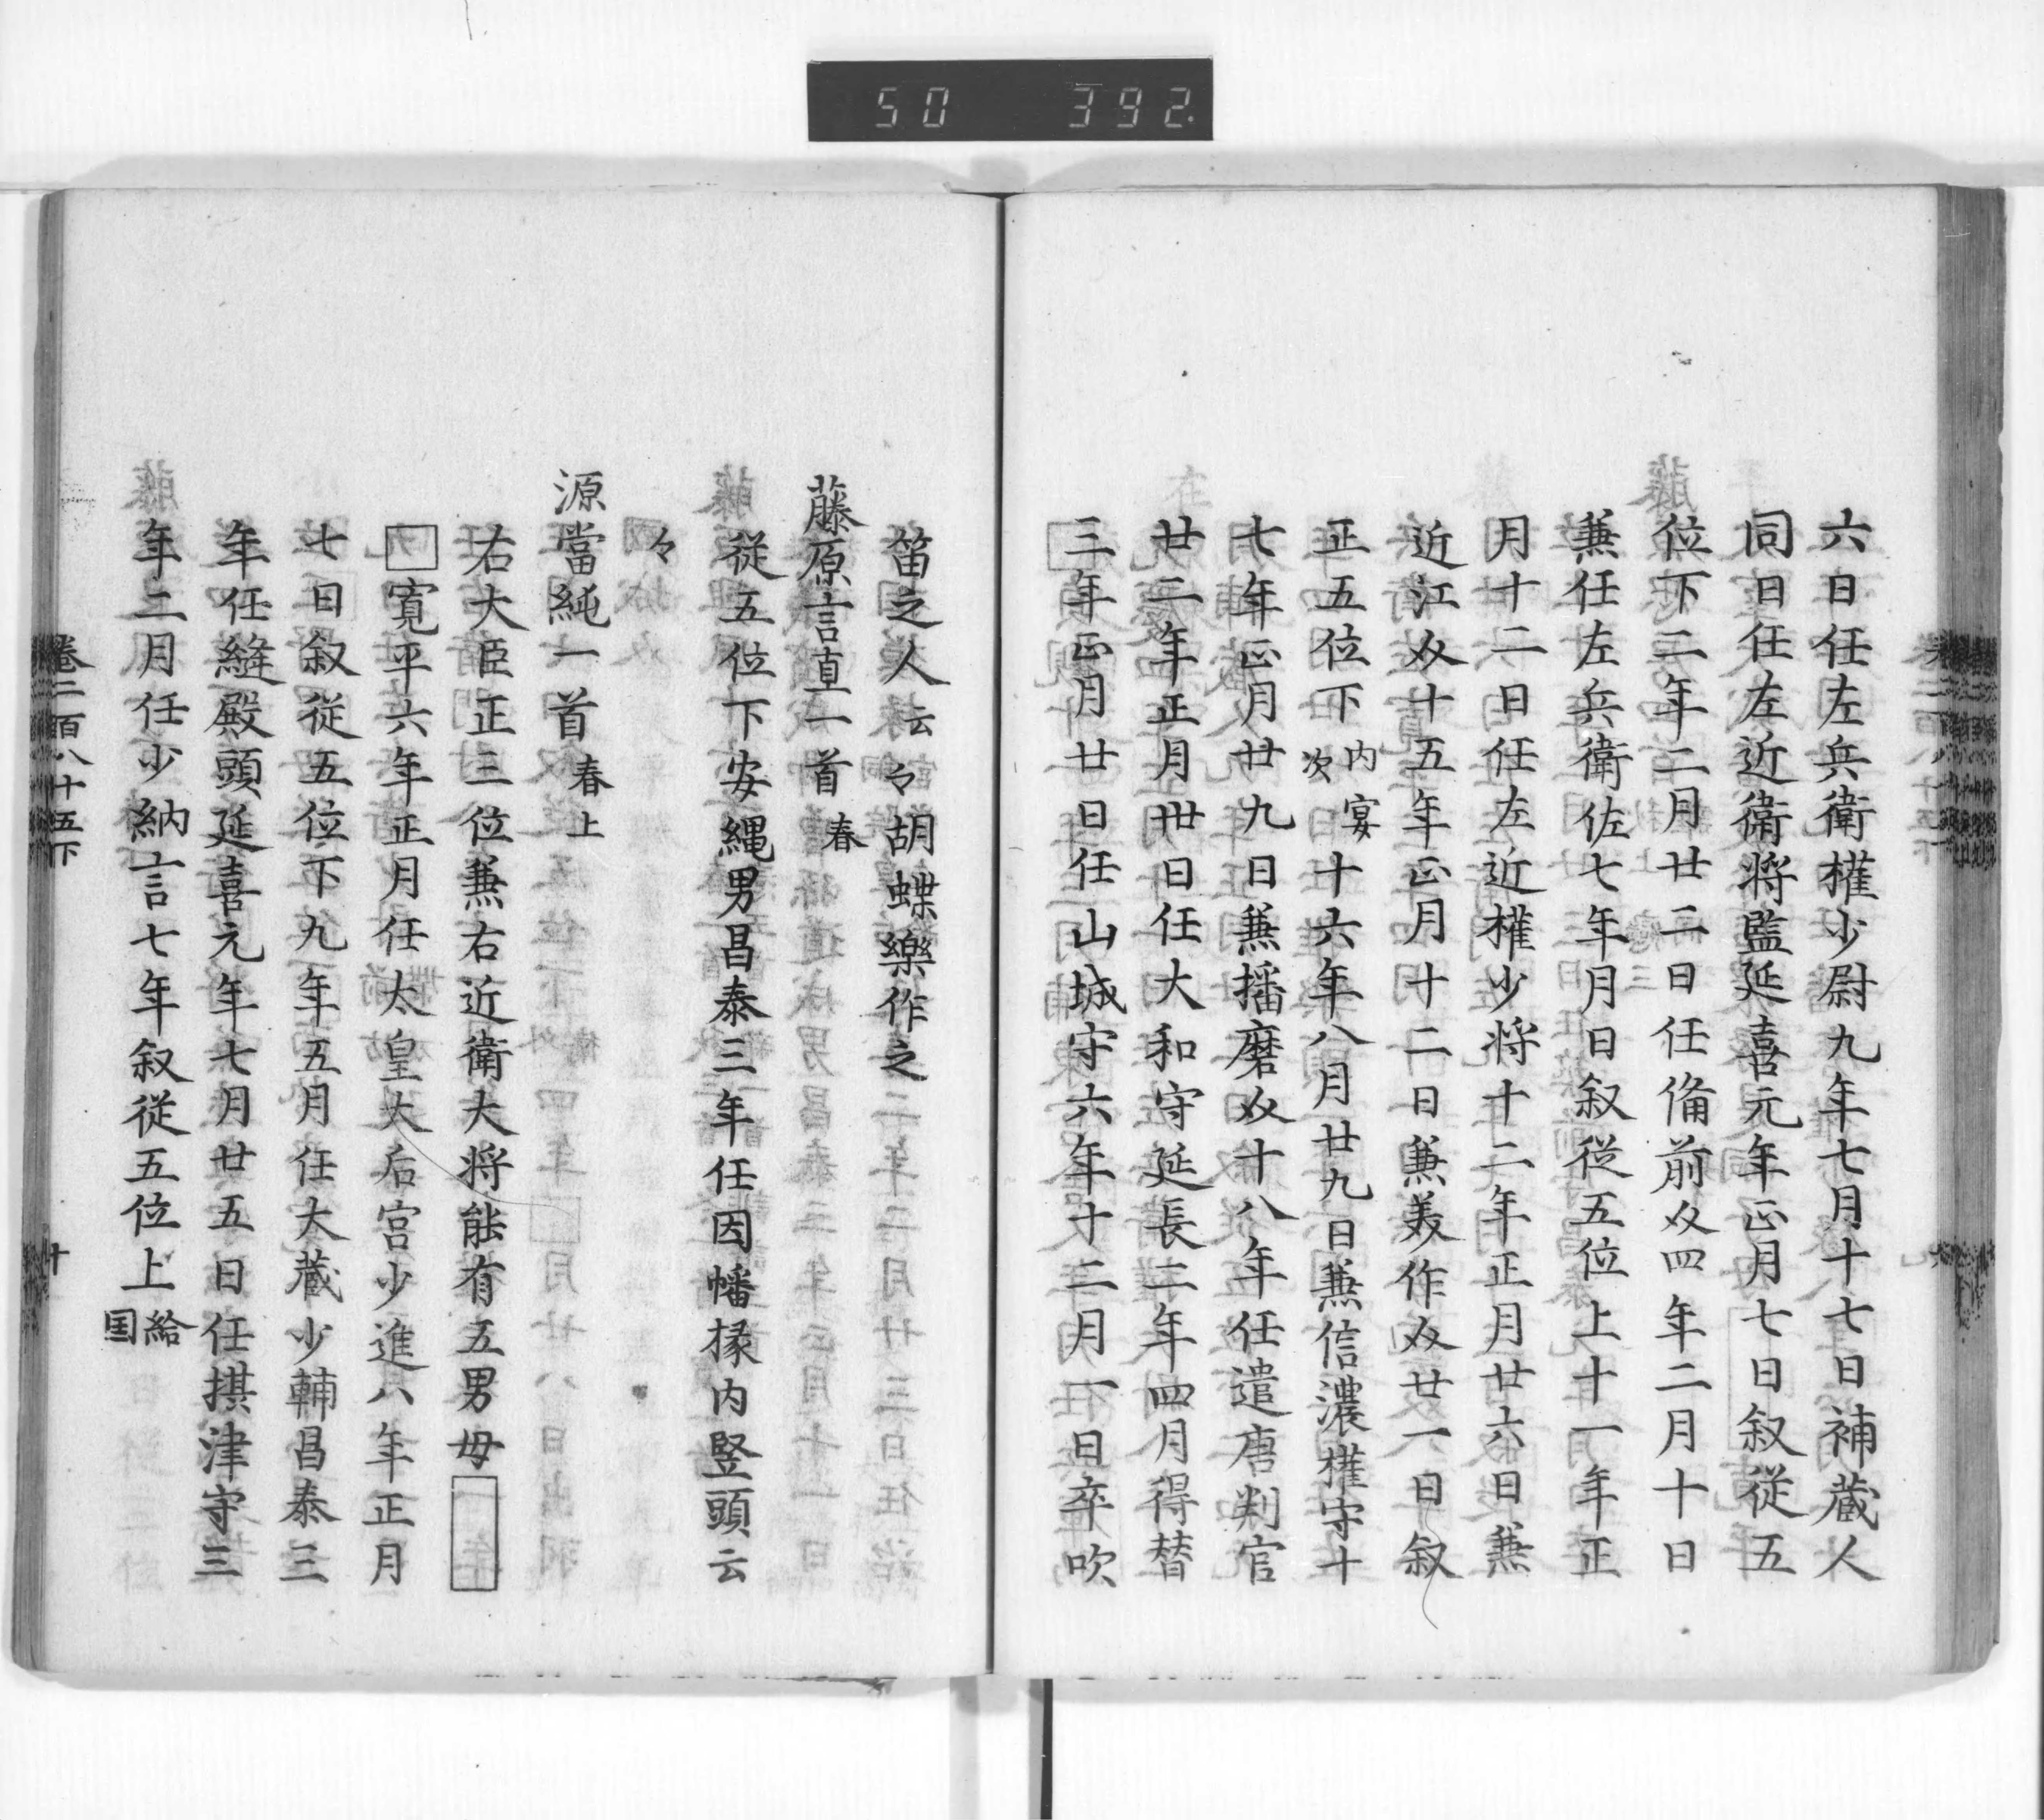 50 392.
六日任左兵衛權少尉九年七月十七日補蔵人
同日任左近衛将監延喜元年正月七日叙従五
位下二年二月廿二日任俻前㕝四年二月十日
兼任左兵衛佐七年月日叙従五位上十一年正
月十二日任左近權少将十二年正月廿六日兼
近江㕝十五年正月十二日兼美作㕝廿一日叙
正五位下内宴次十六年八月廿九日兼信濃權守十
七年正月廿九日兼播磨㕝十八年任遣唐判官
廿二年正月卅日任大和守延長二年四月得替
三年正月廿日任山城守六年十二月一日卒吹
笛之人云々胡蝶樂作之
藤原言直一首春
従五位下安縄男昌泰三年任因幡掾内竪頭云
々
源當純一首春上
右大臣正三位兼右近衛大将能有五男母□
□寛平六年正月任太皇大后宮少進八年正月
七日叙従五位下九年五月任大蔵少輔昌泰三
年任縫殿頭延喜元年七月廿五日任摂津守三
年二月任少納言七年叙従五位上給国
巻二百八十五下 十